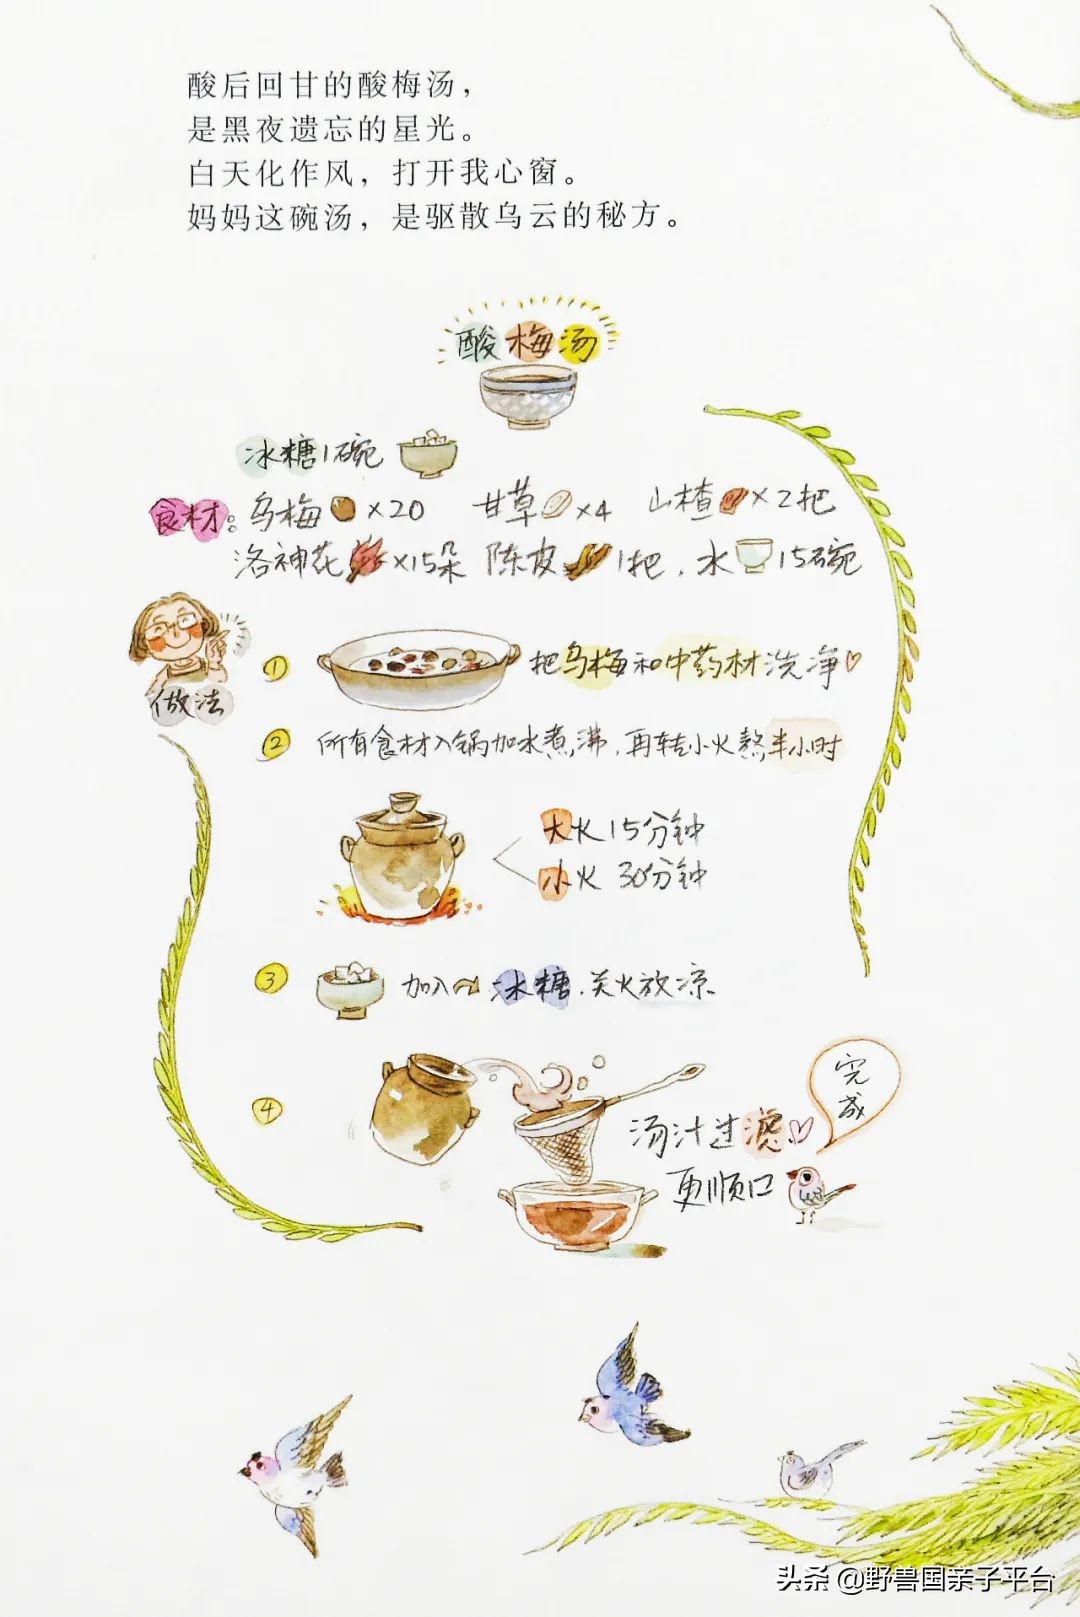 酸后回甘的酸梅汤，
是黑夜遗忘的星光。
白天化作风，打开我心窗。
妈妈这碗汤，是驱散乌云的秘方。
酸梅汤
冰糖1碗
食材：乌梅×20 甘草×4 山楂×2把
洛神花×15朵 陈皮1把.水15碗
做法
① 把乌梅和中药材洗净
② 所有食材入锅加水煮沸.再转小火熬半小时
大火15分钟
小火30分钟
③ 加入~冰糖.关火放凉
④ 汤汁过滤
更顺口
完成
头条 @野兽国亲子平台